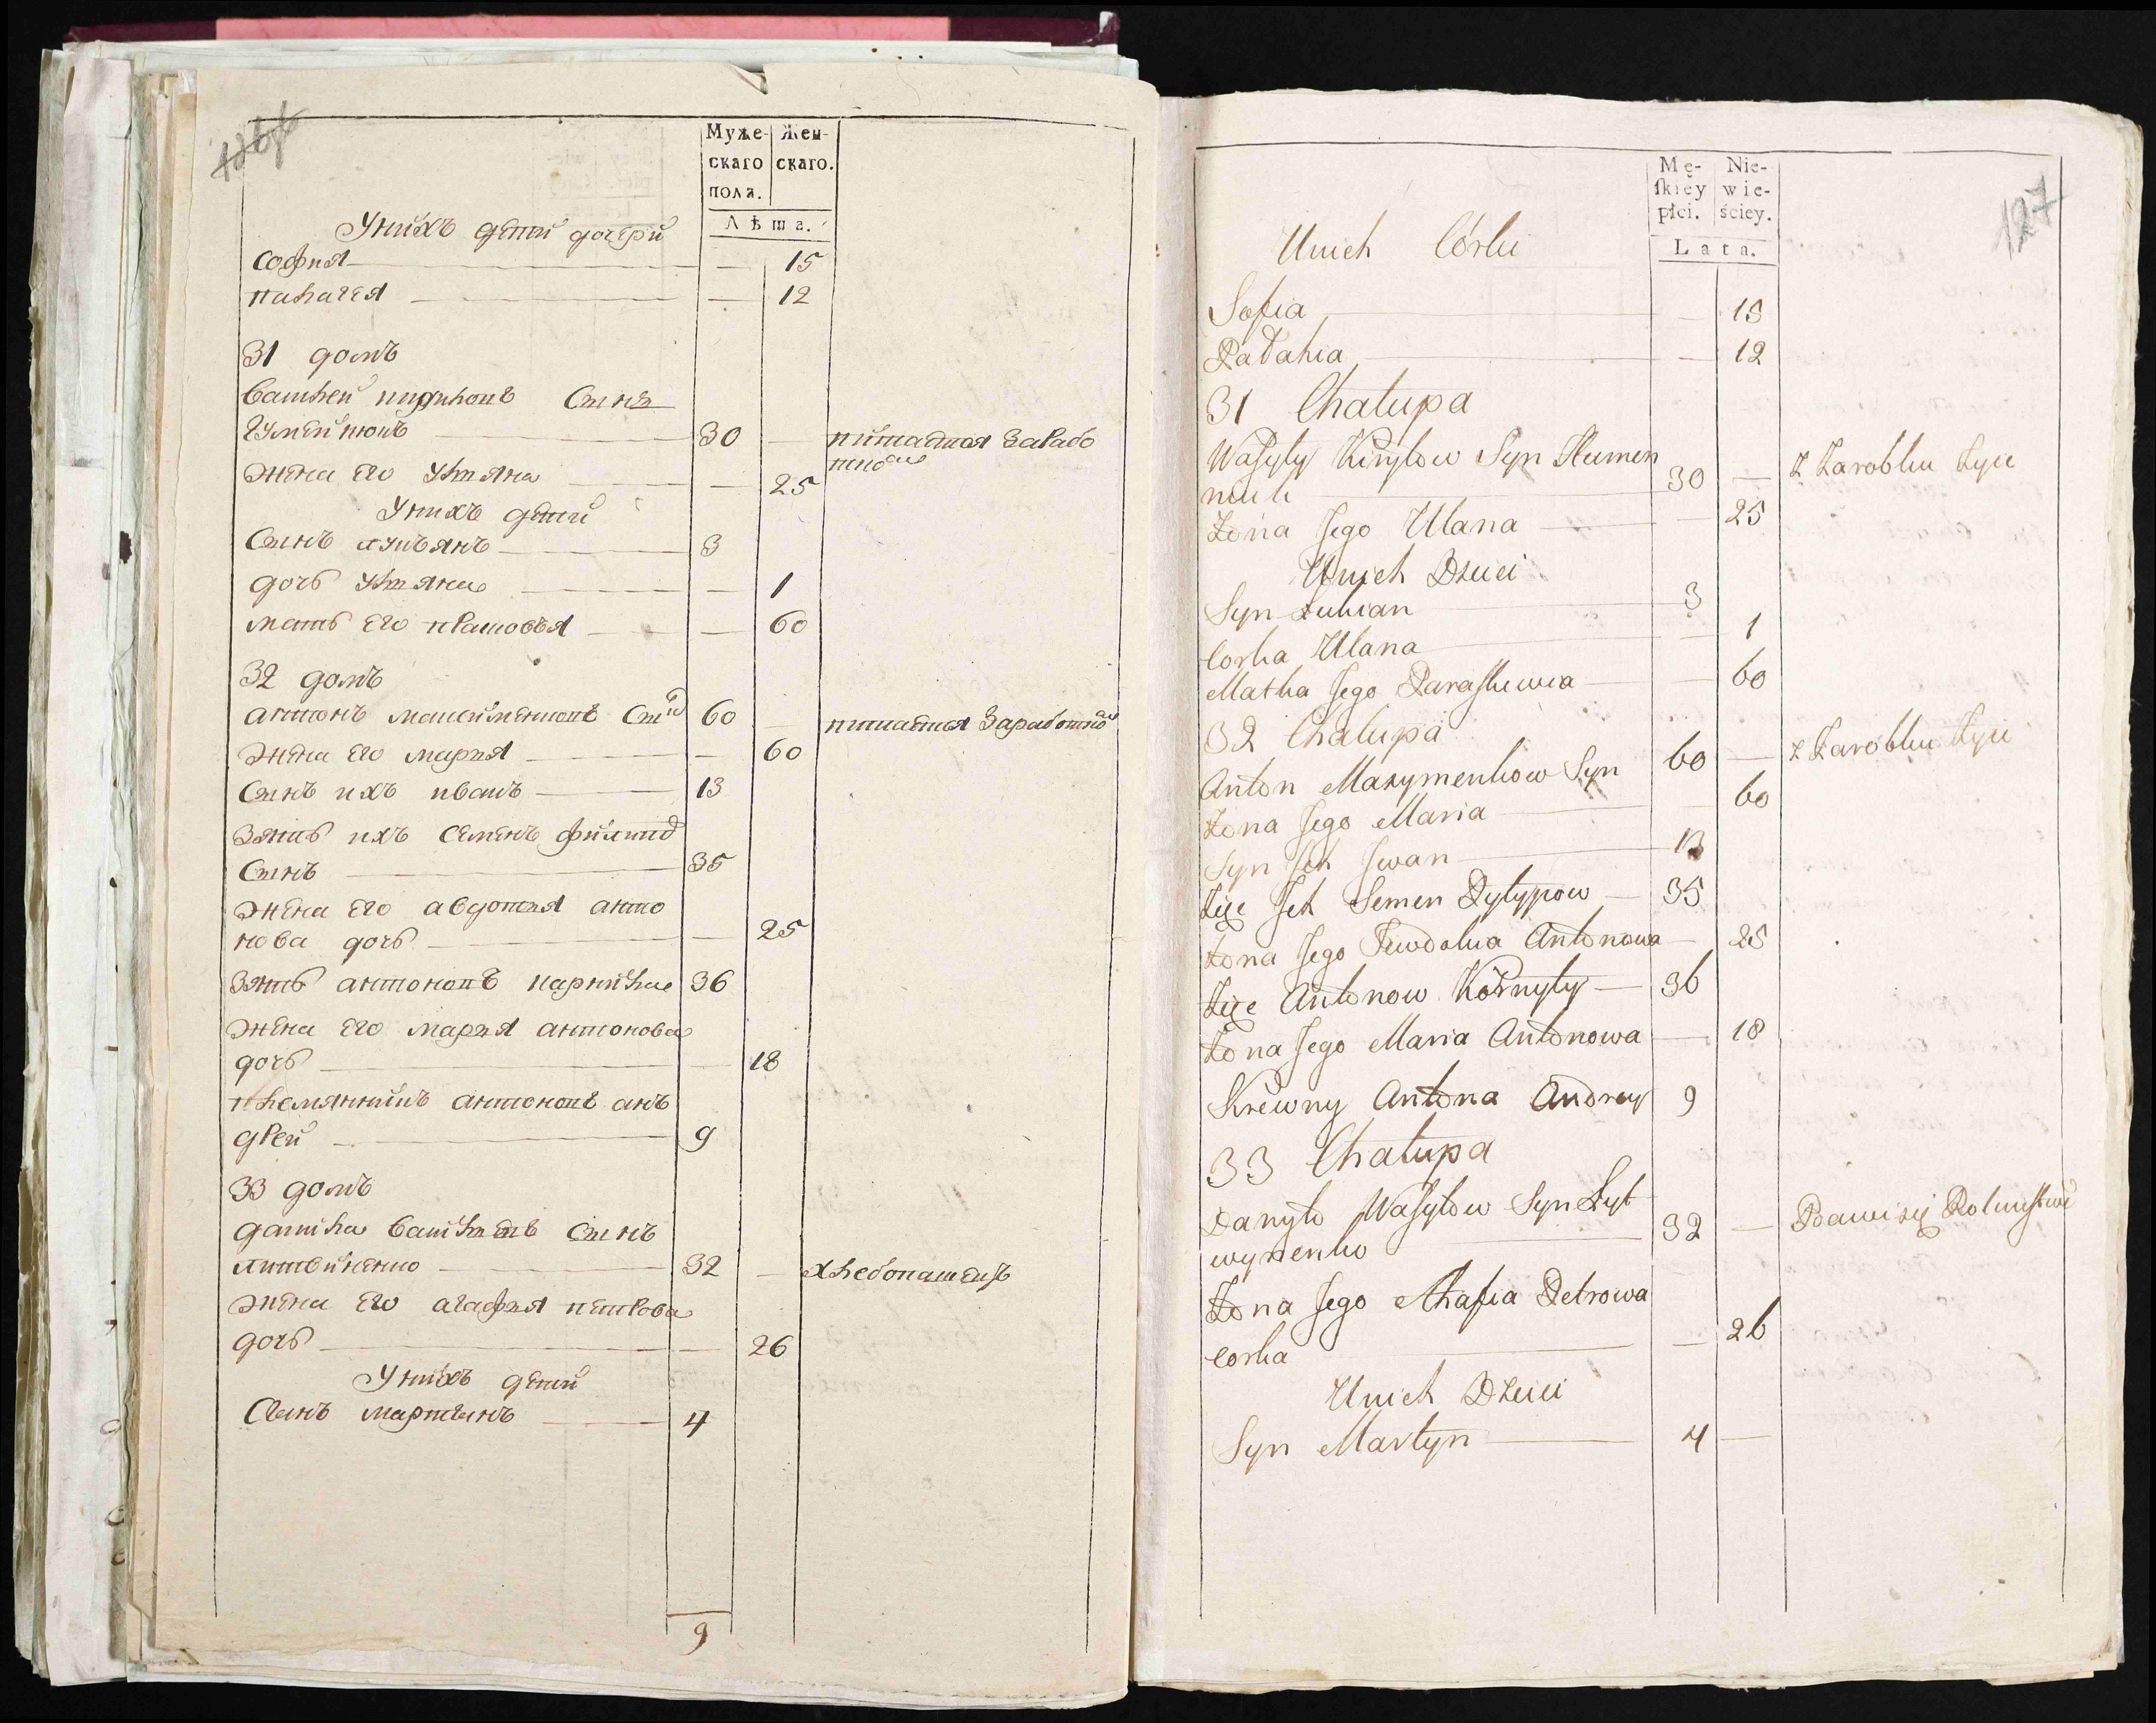 Муже-
скаго
пола.
Жен-
скаго.
Лѣта.
Унихъ детей дочери
София 15
палагея 12
31 домъ
василей кириловъ Синъ
гуменюкъ 30 питается Зарабо
тко
жена его улияна 25
Унихъ детей
Синъ лукъянъ 3
дочь улияна 1
мать его прасковъя 60
32 домъ
антонъ 60 питается Заработко
жена его мария 60
Синъ ихъ иванъ 13
Зять ихъ Семенъ филипо
Синъ 35
жена его авдотия анто
нова дочь 25
Зять антоновъ 36
жена его мария антонова
дочь 18
племянникъ антоновъ анъ
дрей 9
33 домъ
данила василевъ Синъ
литвиненко 32 хлебопашецъ
жена его агафия петрова
дочь 26
Унихъ детей
Синъ мартинъ 4
9
127
Mę-
skiey
płci.
Nie-
wie-
ściey.
Lata.
Unich Córki
Sofia 15
Pałahia 12
31 Chałupa
Wasyly Kiryłow Syn Humen
niuk 30 z Zarobku żyie
Żona Jego Ulana 25
Unich Dzieci
Syn Łukian 3
Corka Ulana 1
Matka Jego Paraskiewia 60
32 Chałupa
Anton Maxymenkow Syn 60 z Zarobku żyie
Żona Jego Maria 60
Syn Ich Iwan 13
Zięć Ich Semen Pylypow 35
Żona Jego Jewdokia Antonowa 25
Zięć Antonow Kornyły 36
Żona Jego Maria Antonowa 18
Krewny Antona Andrey 9
33 Chałupa
Danyło Wasylow Syn Lyt
wynenko 32 Bawi się Rolnictwe
Żona Jego Ahafia Petrowa
Corka 26
Unich Dzieci
Syn Martyn 4